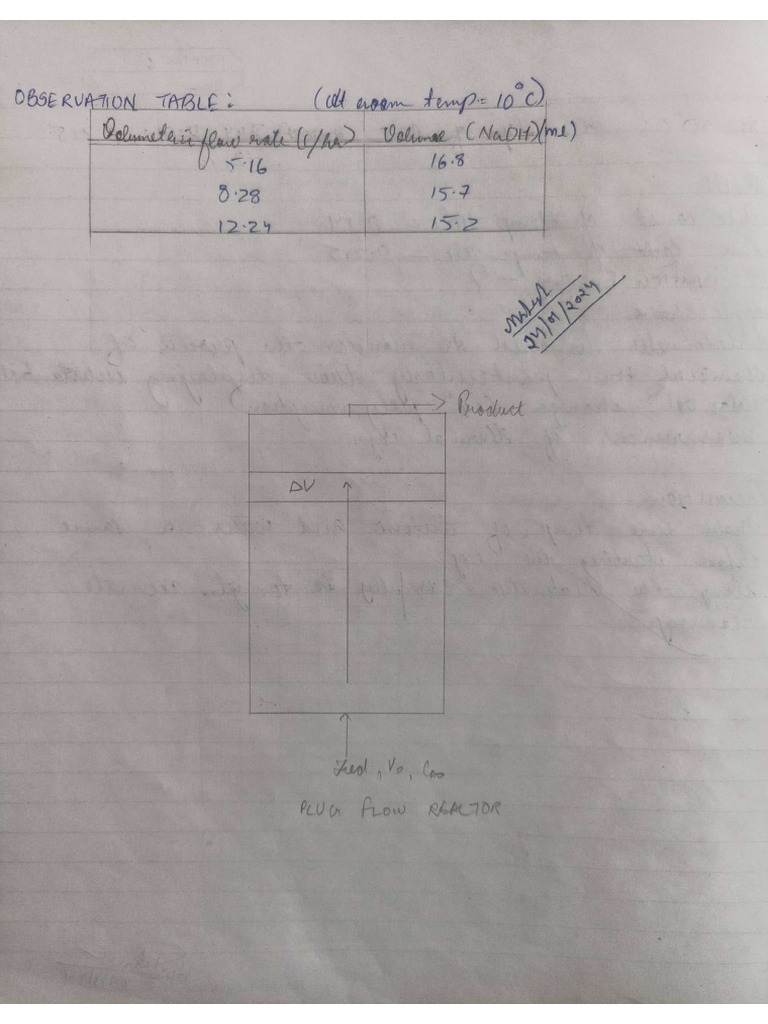 OBSERVATION TABLE: (At room temp = 10°C)
Volumetric flow rate (l/hr) Volume (NaOH)(ml)
5.16 16.8
8.28 15.7
12.24 15.2
24/01/2024
Product
ΔV
Feed, V0, CA0
PLUG FLOW REACTOR